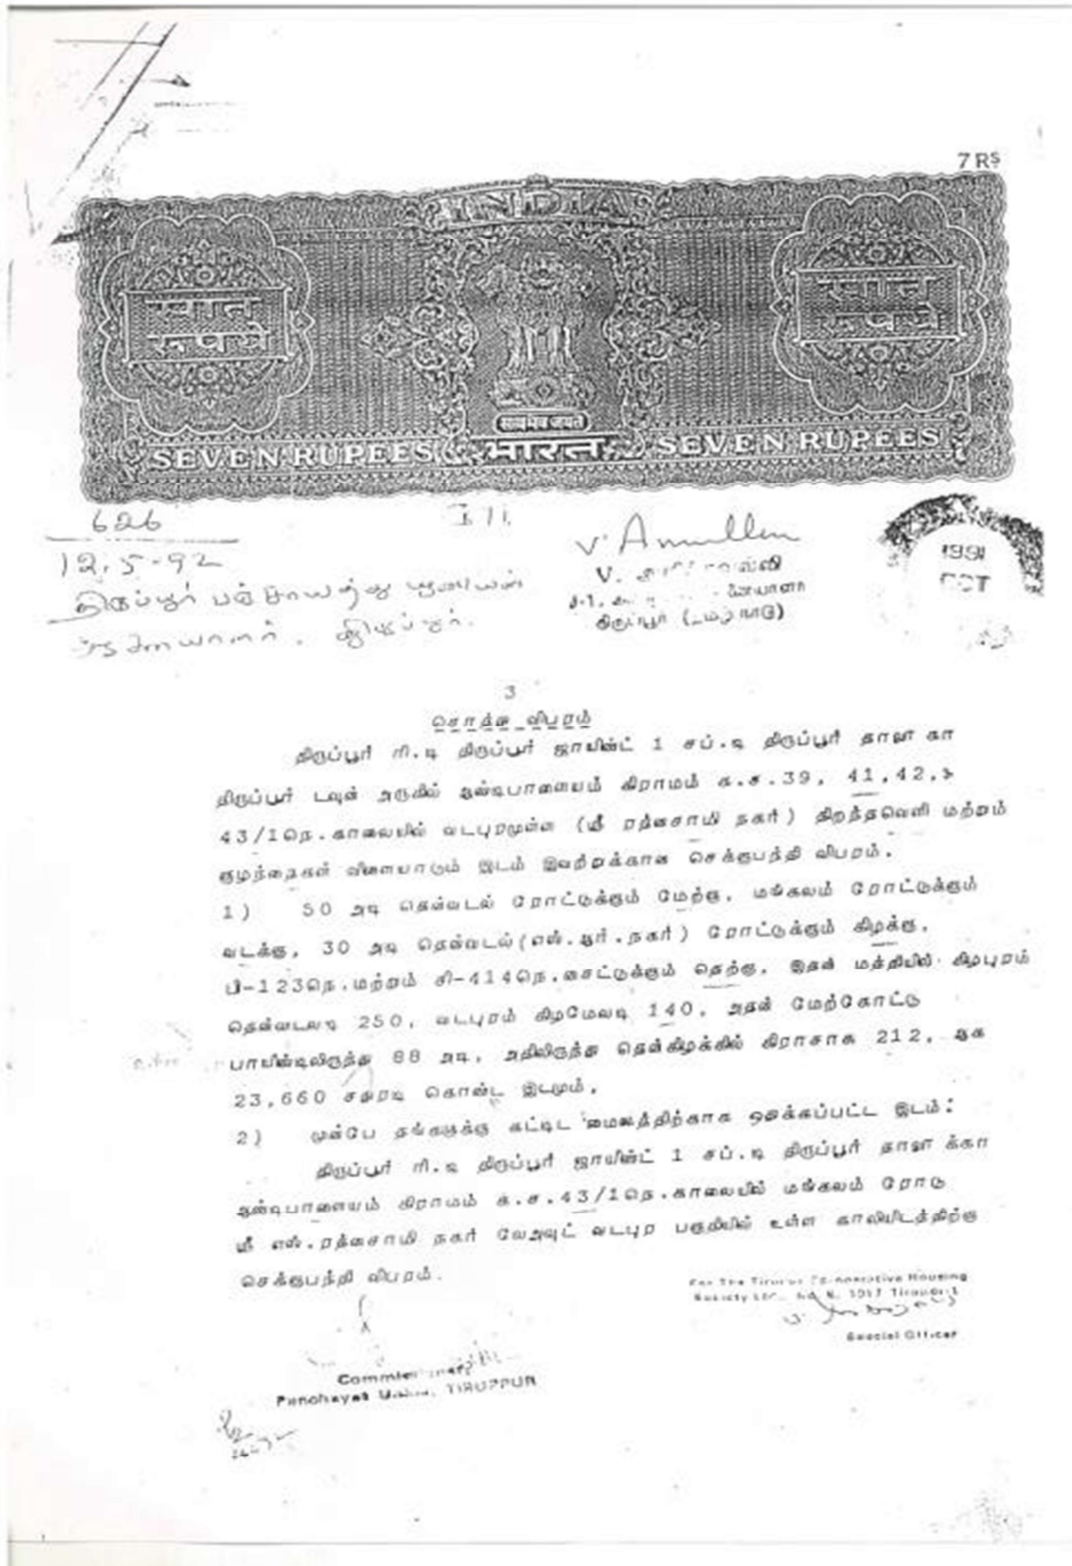 7 Rs
INDIA
सात
रुपये
सात
रुपये
सत्यमेव जयते
SEVEN RUPEES भारत SEVEN RUPEES
626
12.5-92
திருப்பூர் பஞ்சாயத்து யூனியன்
திருப்பூர்.
V.
திருப்பூர்
1991
OCT
3
சொத்து விபரம்
திருப்பூர் ரி.டி திருப்பூர் ஜாயிண்ட் 1 சப்.டி திருப்பூர் தாலுகா
திருப்பூர் டவுன் அருகில் ஆண்டிபாளையம் கிராமம் க.ச.39, 41,42,
43/1நெ.காலையில் வடபுரமுள்ள (ஸ்ரீ ரத்னசாமி நகர்) திறந்தவெளி மற்றம்
குழந்தைகள் விளையாடும் இடம் இவற்றக்கான செக்குபந்தி விபரம்.
1) 50 அடி தென்வடல் ரோட்டுக்கும் மேற்கு, மங்கலம் ரோட்டுக்கும்
வடக்கு, 30 அடி தென்வடல்(எஸ்.ஆர்.நகர்) ரோட்டுக்கும் கிழக்கு,
பி-123நெ.மற்றம் சி-414நெ.சைட்டுக்கும் தெற்கு, இதன் மத்தியில் கிழபுரம்
தென்வடலடி 250, வடபுரம் கிழமேலடி 140, அதன் மேற்கோட்டு
பாயிண்டிலிருந்து 88 அடி, அதிலிருந்து தென்கிழக்கில் கிராசாக 212, ஆக
23,660 சதுரடி கொண்ட இடமும்,
2) முன்பே தங்களுக்கு கட்டிட மையத்திற்காக ஒதுக்கப்பட்ட இடம்:
திருப்பூர் ரி.டி திருப்பூர் ஜாயிண்ட் 1 சப்.டி திருப்பூர் தாலுக்கா
ஆண்டிபாளையம் கிராமம் க.ச.43/1நெ.காலையில் மங்கலம் ரோடு
ஸ்ரீ எஸ்.ரத்னசாமி நகர் லேஅவுட் வடபுர பகுதியில் உள்ள காலியிடத்திற்கு
செக்குபந்தி விபரம்.
For The Tirupur Co-operative Housing
Society Ltd., Tirupur-1
Special Officer
Commissioner,
Panchayat Union, TIRUPPUR